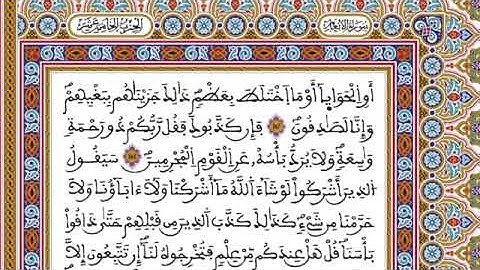 سورة الأنعام
الحزب الخامس عشر
أَوِ اِلْحَوَايَآ أَوْ مَا اَخْتَلَطَ بِعَظْمٖ ذَٰلِكَ جَزَيْنَٰهُم بِبَغْيِهِمْ
وَإِنَّا لَصَٰدِقُونَ فَإِن كَذَّبُوكَ فَقُل رَّبُّكُمْ ذُو رَحْمَةٖ
وَٰسِعَةٖ وَلَا يُرَدُّ بَأْسُهُۥ عَنِ اِلْقَوْمِ اِلْمُجْرِمِينَ سَيَقُولُ
اُلذِينَ أَشْرَكُواْ لَوْ شَآءَ اَللَّهُ مَآ أَشْرَكْنَا وَلَآ ءَابَآؤُنَا وَلَا
حَرَّمْنَا مِن شَےْءٖ كَذَٰلِكَ كَذَّبَ اَلذِينَ مِن قَبْلِهِمْ حَتَّىٰ ذَاقُواْ
بَأْسَنَا قُلْ هَلْ عِندَكُم مِّنْ عِلْمٖ فَتُخْرِجُوهُ لَنَآ إِن تَتَّبِعُونَ إِلَّا